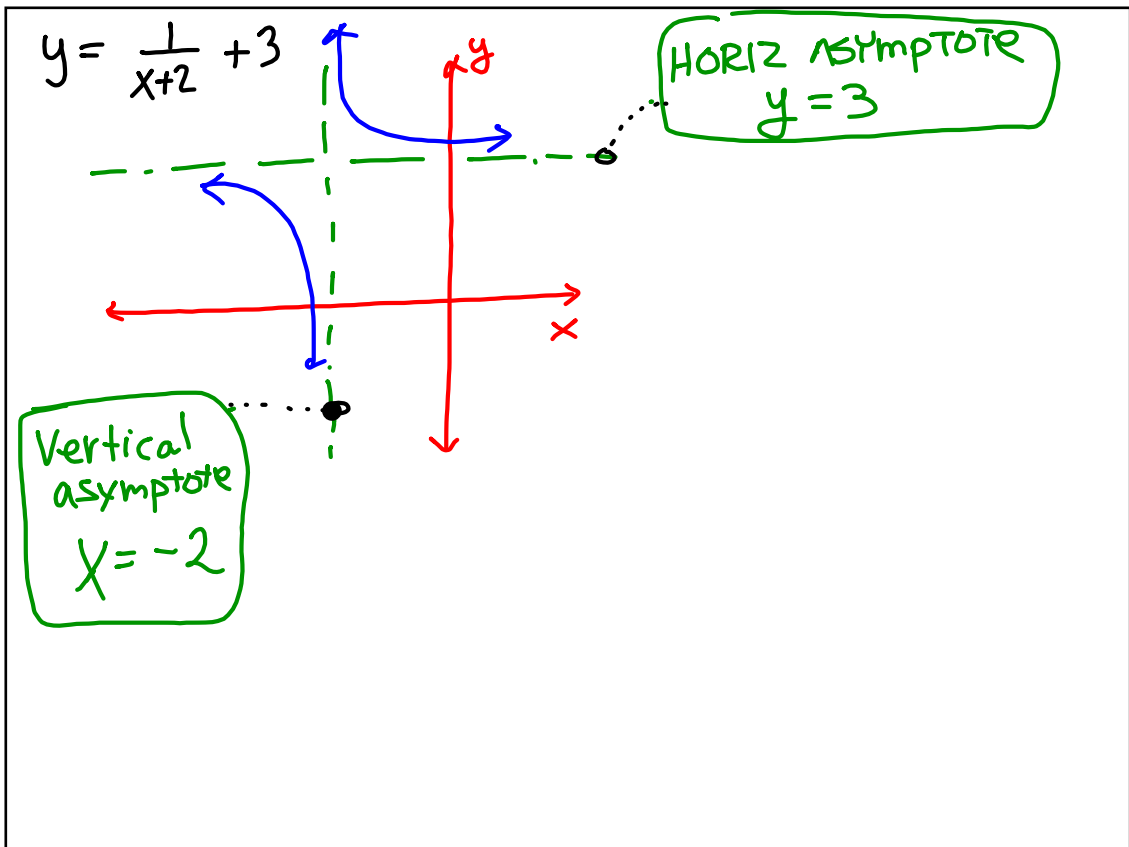 y = 1/(x+2) + 3
y
HORIZ ASYMPTOTE
y = 3
x
Vertical
asymptote
x = -2